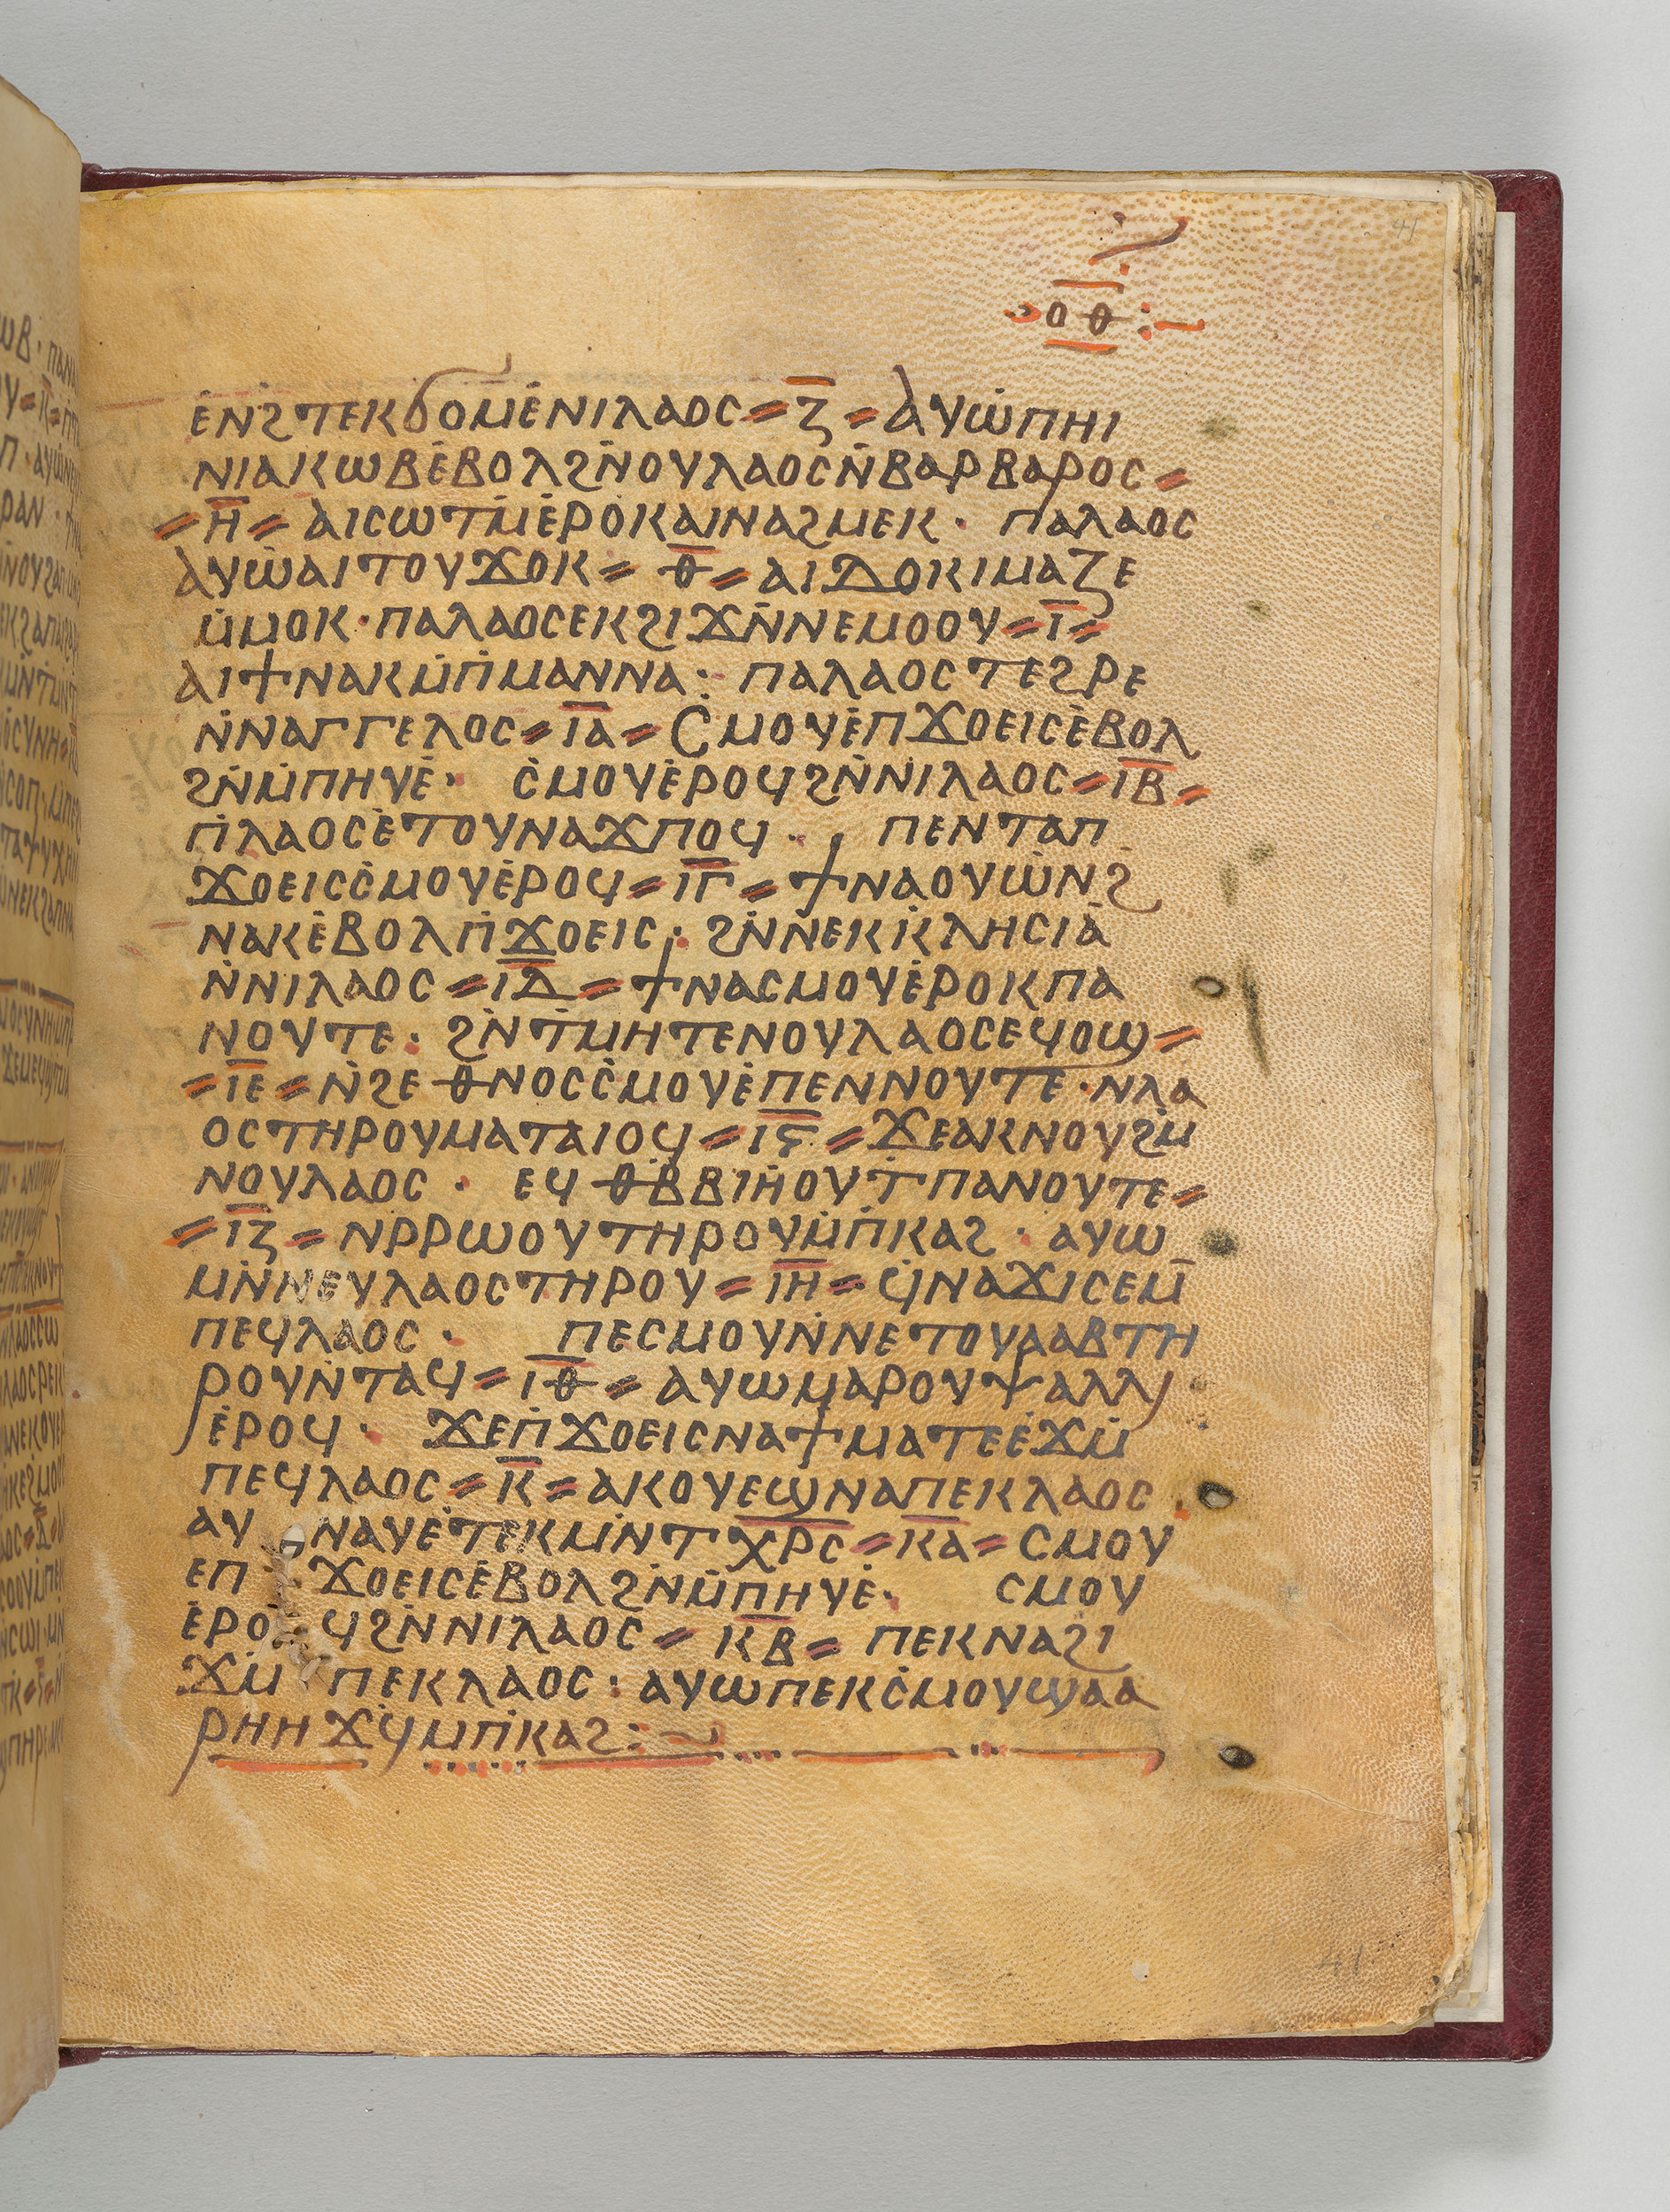 ⲟⲑ
ⲉ̇ⲛϩⲧⲉⲕϭⲟⲙⲉ̇ⲛⲓⲗⲁⲟⲥ = ⲍ̅ = ⲁⲩⲱ̇ⲡⲏⲓ
ⲛⲓⲁⲕⲱⲃⲉ̇ⲃⲟⲗϩⲛ̇ⲟⲩⲗⲁⲟⲥⲛ̇ⲃⲁⲣⲃⲁⲣⲟⲥ =
= ⲏ̅ = ⲁⲓⲥⲱⲧⲙ̇ⲉ̇ⲣⲟⲕⲁⲓⲛⲁϩⲙⲉⲕ · ⲡⲁⲗⲁⲟⲥ
ⲁⲩⲱ̇ⲁⲓⲧⲟⲩϫⲟⲕ = ⲑ̅ = ⲁⲓⲇⲟⲕⲓⲙⲁⲍⲉ
ⲙ̇ⲙⲟⲕ · ⲡⲁⲗⲁⲟⲥⲉⲕϩⲓϫⲛ̇ⲛⲉⲙⲟⲟⲩ = ⲓ̅ =
ⲁⲓϯⲛⲁⲕⲙ̇ⲡ̇ⲙⲁⲛⲛⲁ : ⲡⲁⲗⲁⲟⲥⲧⲉϩⲣⲉ
ⲛ̇ⲛⲁⲅⲅⲉⲗⲟⲥ = ⲓ̅ⲁ̅ = ⲥⲙⲟⲩⲉ̇ⲡϫⲟⲉⲓⲥⲉ̇ⲃⲟⲗ
ϩⲛ̇ⲙ̇ⲡⲏⲩⲉ̇ · ⲥ̇ⲙⲟⲩⲉ̇ⲣⲟϥϩⲛ̇ⲛⲓⲗⲁⲟⲥ = ⲓ̅ⲃ̅ =
ⲡ̇ⲗⲁⲟⲥⲉ̇ⲧⲟⲩⲛⲁϫⲡⲟϥ · ⲡⲉⲛⲧⲁⲡ
ϫⲟⲉⲓⲥⲥ̇ⲙⲟⲩⲉ̇ⲣⲟϥ = ⲓ̅ⲅ̅ = ϯⲛⲁⲟⲩⲱ̇ⲛϩ
ⲛⲁⲕⲉ̇ⲃⲟⲗⲡ̇ϫⲟⲉⲓⲥ : ϩⲛ̇ⲛⲉⲕⲕ̇ⲗⲏⲥⲓⲁ̇
ⲛ̇ⲛⲓⲗⲁⲟⲥ = ⲓ̅ⲇ̅ = ϯⲛⲁⲥⲙⲟⲩⲉ̇ⲣⲟⲕⲡⲁ
ⲛⲟⲩⲧⲉ : ϩⲛ̇ⲧ̇ⲙⲏⲧⲉⲛⲟⲩⲗⲁⲟⲥⲉϥⲟϣ =
= ⲓ̅ⲉ̅ = ⲛ̇ϩⲉⲑⲛⲟⲥⲥ̇ⲙⲟⲩⲉ̇ⲡⲉⲛⲛⲟⲩⲧⲉ · ⲛⲗⲁ
ⲟⲥⲧⲏⲣⲟⲩⲙⲁⲧⲁⲓⲟϥ = ⲓ̅ⲋ̅ = ϫⲉⲁⲕⲛⲟⲩϩⲙ̇
ⲛⲟⲩⲗⲁⲟⲥ · ⲉϥⲑⲃ̇ⲃⲓⲏ̇ⲟⲩⲧ̇ⲡⲁⲛⲟⲩⲧⲉ =
= ⲓ̅ⲍ̅ = ⲛⲣⲣⲱⲟⲩⲧⲏⲣⲟⲩⲙ̇ⲡ̇ⲕⲁϩ · ⲁⲩⲱ
ⲙⲛ̇ⲛⲉⲩⲗⲁⲟⲥⲧⲏⲣⲟⲩ = ⲓ̅ⲏ̅ = ϥ̇ⲛⲁϫⲓⲥⲉⲙ̅
ⲡⲉϥⲗⲁⲟⲥ · ⲡⲉⲥⲙⲟⲩⲛ̇ⲛⲉⲧⲟⲩⲁⲁⲃⲧⲏ
ⲣⲟⲩⲛ̇ⲧⲁϥ = ⲓ̅ⲑ̅ = ⲁⲩⲱⲙⲁⲣⲟⲩⲯⲁⲗⲗⲓ
ⲉ̇ⲣⲟϥ · ϫⲉⲡ̇ϫⲟⲉⲓⲥⲛⲁϯⲙⲁⲧⲉⲉ̇ϫⲙ̇
ⲡⲉϥⲗⲁⲟⲥ = ⲕ̅ = ⲁⲕⲟⲩⲉϣⲛⲁⲡⲉⲕⲗⲁⲟⲥ
ⲁⲩ ⲛⲁⲩⲉ̇ⲧⲉⲕⲙⲛ̇ⲧⲭ̅ⲣ̅ⲥ̅ = ⲕ̅ⲁ̅ = ⲥⲙⲟⲩ
ⲉⲡ ϫⲟⲉⲓⲥⲉ̇ⲃⲟⲗϩⲛ̇ⲙ̇ⲡⲏⲩⲉ̇ · ⲥⲙⲟⲩ
ⲉ̇ⲣⲟ ϥϩⲛ̇ⲛⲓⲗⲁⲟⲥ = ⲕ̅ⲃ̅ = ⲡⲉⲕⲛⲁϩⲓ
ϫⲙ̇ ⲡⲉⲕⲗⲁⲟⲥ : ⲁⲩⲱⲡⲉⲕⲥ̇ⲙⲟⲩϣⲁⲁ
ⲣⲏⲏϫϥ̇ⲙⲡ̇ⲕⲁϩ :
41
41